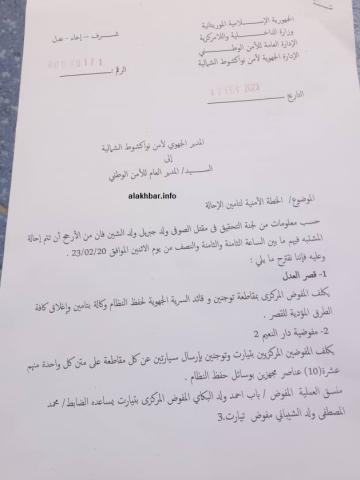 الجمهورية الإسلامية الموريتانية
وزارة الداخلية واللامركزية
الإدارة العامة للأمن الوطني
الإدارة الجهوية لأمن نواكشوط الشمالية
شرف – إخاء – عدل
الرقم:
التاريخ:
المدير الجهوي لأمن نواكشوط الشمالية
إلى
الســـيد/ المدير العام للأمن الوطني
alakhbar.info
الموضوع/ الخطة الأمنية لتامين الإحالة
حسب معلومات من لجنة التحقيق في مقتل الصوفي ولد جبريل ولد الشين فان من الأرجح أن تتم إحالة
المشتبه فيهم ما بين الساعة الثامنة والثامنة والنصف من يوم الاثنين الموافق 23/02/20
وعليه فإننا نقترح ما يلي :
1- قصر العدل
يكلف المفوض المركزي بمقاطعة توجنين و قائد السرية الجهوية لحفظ النظام وكالة بتامين وإغلاق كافة
الطرق المؤدية للقصر .
2- مفوضية دار النعيم 2
يكلف المفوضين المركزيين بتيارت وتوجنين بإرسال سيارتين عن كل مقاطعة على متن كل واحدة منهم
عشرة(10) عناصر مجهزين بوسائل حفظ النظام .
منسق العملية المفوض / باب احمد ولد البكاي المفوض المركزي بتيارت يساعده الضابط/ محمد
المصطفى ولد الشيباني مفوض تيارت.3